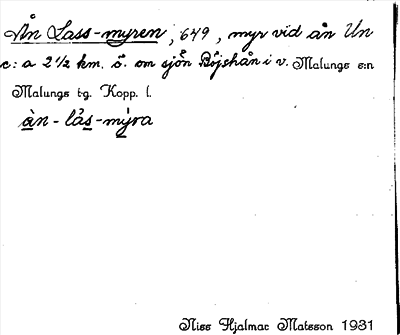 Ån Lass-myren, 649, myr vid ån Un
c:a 2 1/2 km. ö. om sjön Böjshån i v. Malungs s:n
Malungs tg. Kopp. l.
àn-làs-mýra
Niss Hjalmar Matsson 1931